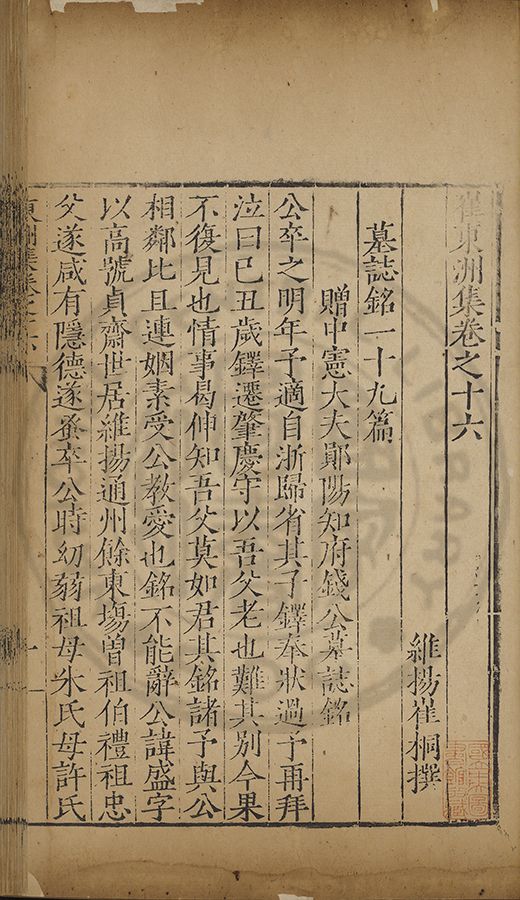 崔東洲集卷之十六
維揚崔桐撰
墓誌銘一十九篇
贈中憲大夫鄖陽知府錢公墓誌銘
公卒之明年予適自浙歸省其子鐸奉狀過予再拜
泣曰己丑歲鐸遷肇慶守以吾父老也難其別今果
不復見也情事曷伸知吾父莫如君其銘諸予與公
相鄰比且連姻素受公教愛也銘不能辭公諱盛字
以高號貞齋世居維揚通州餘東場曾祖伯禮祖忠
父遂咸有隱德遂蚤卒公時幼弱祖母朱氏母許氏